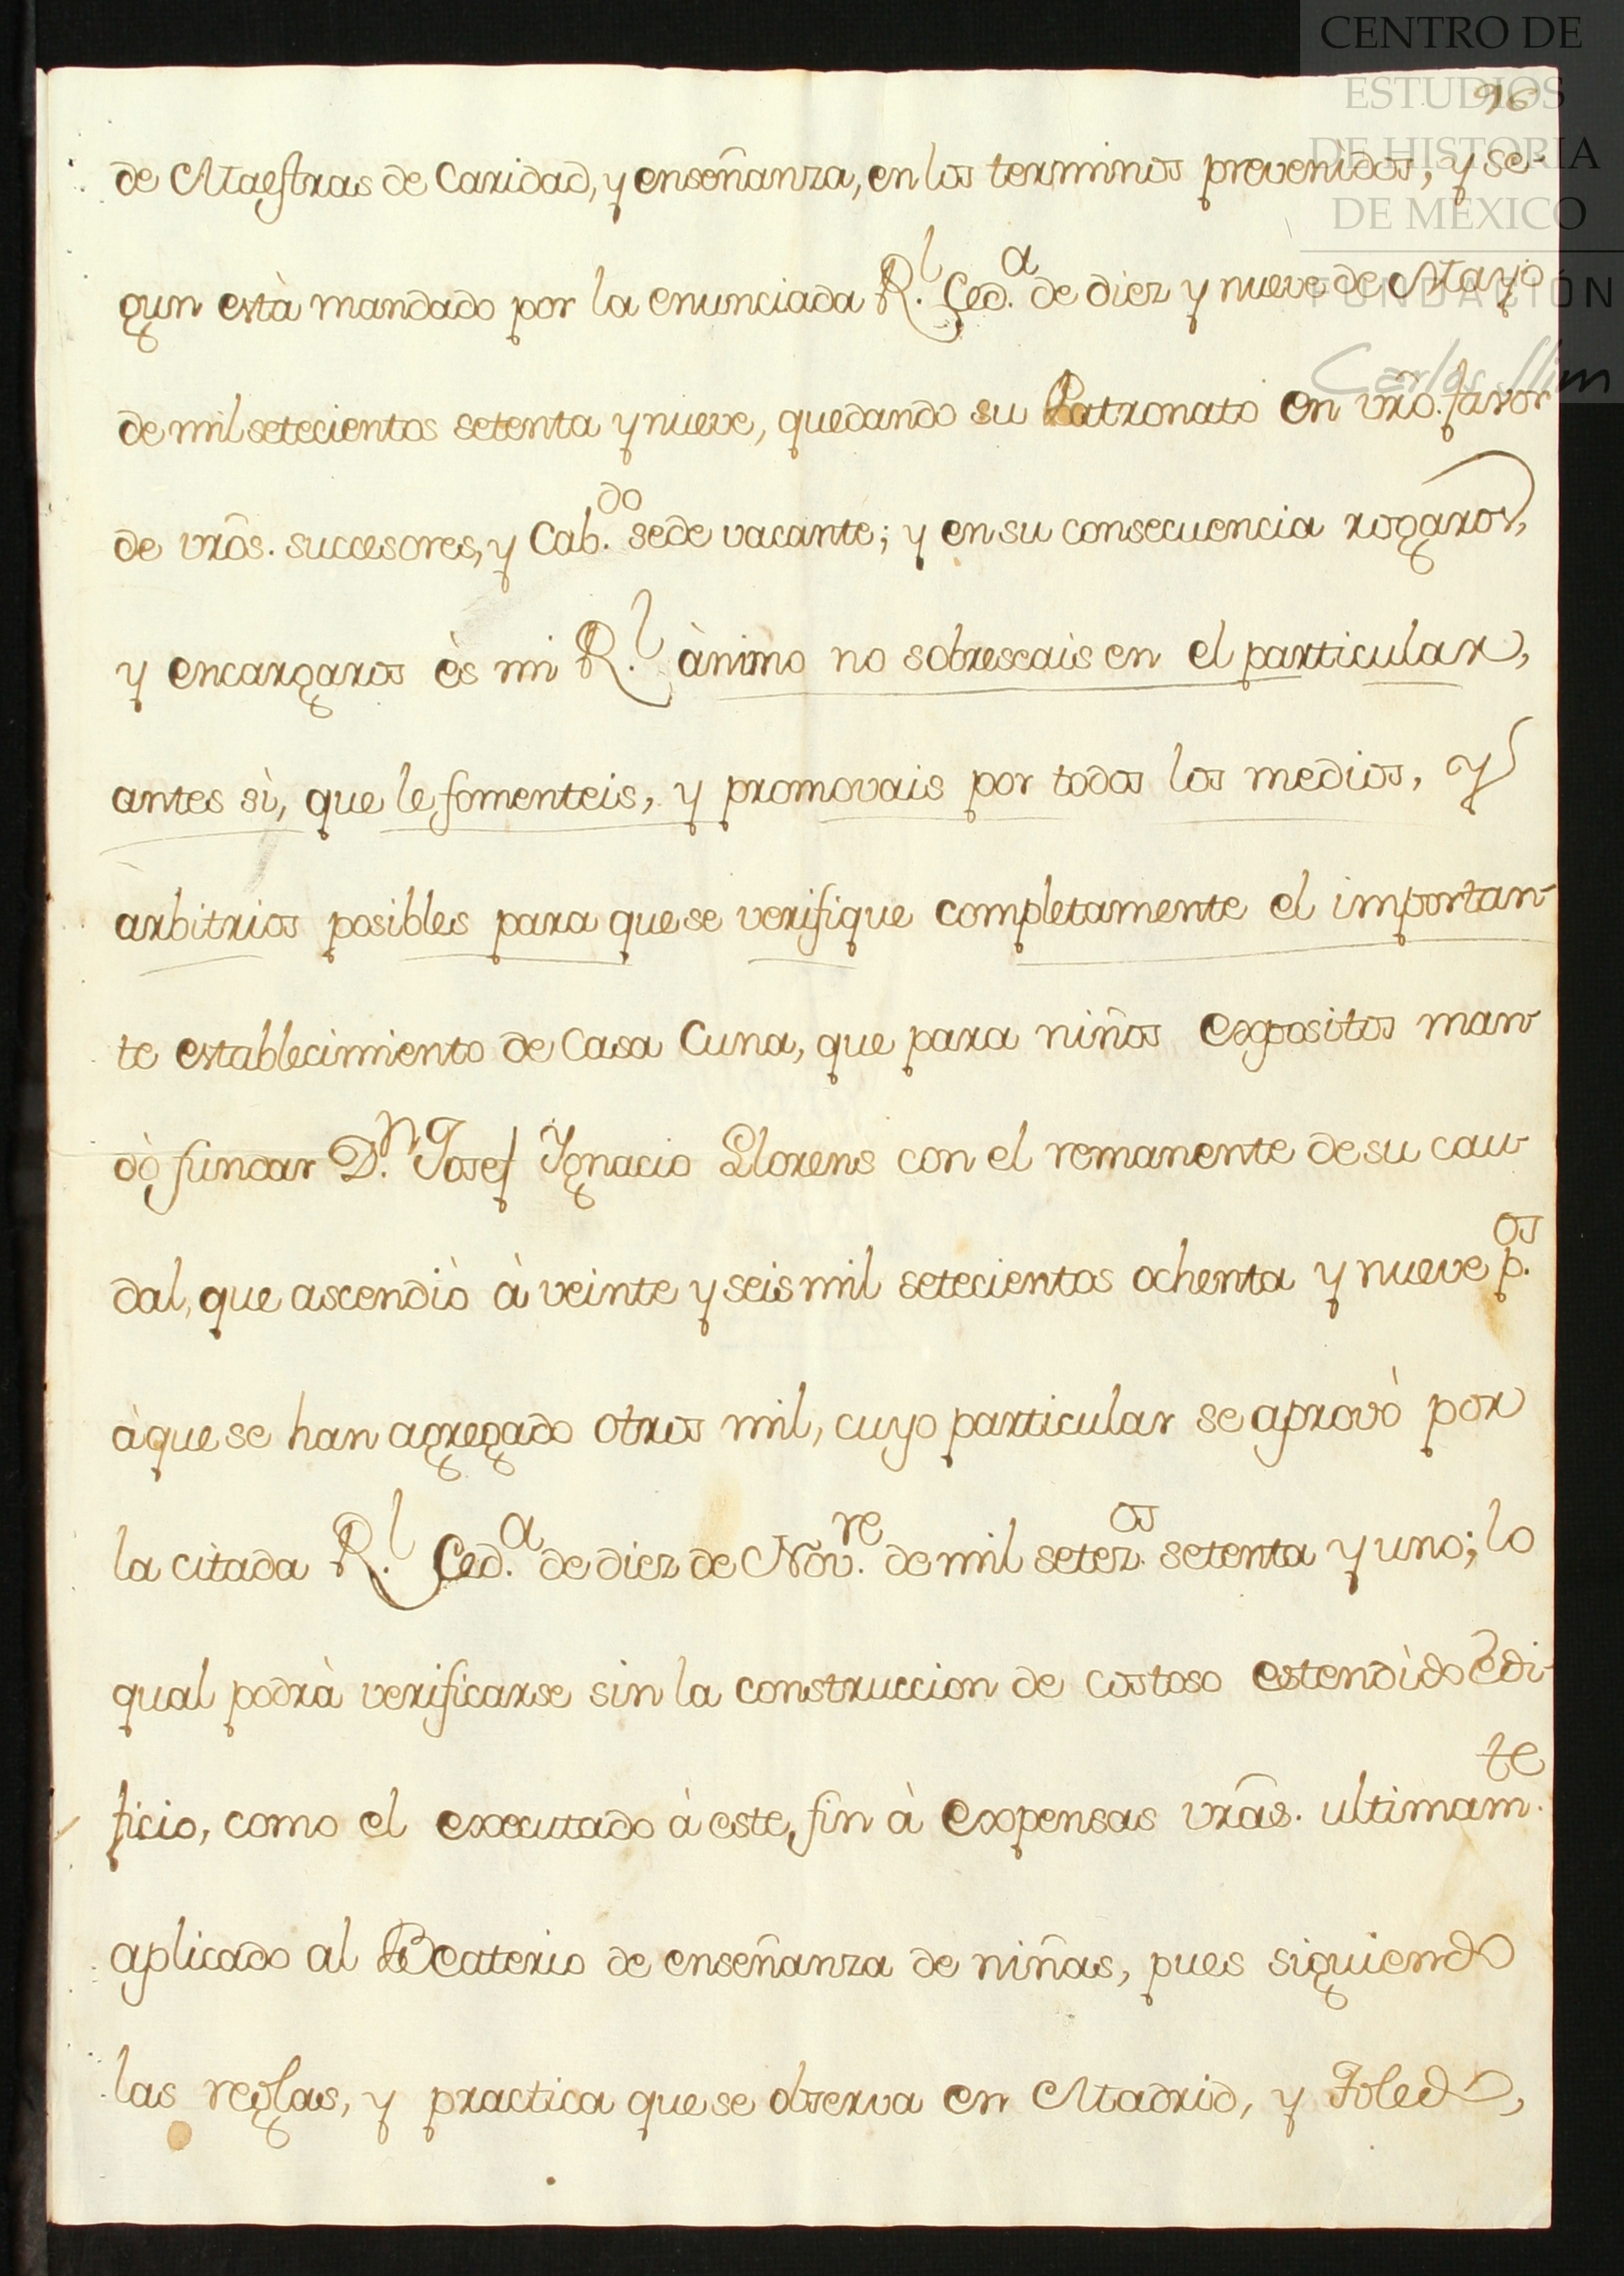 CENTRO DE
ESTUDIOS
DE HISTORIA
DE MÉXICO
FUNDACIÓN
Carlos Slim
96
de Maestras de Caridad, y enseñanza, en los terminos prevenidos, y se-
gun està mandado por la enunciada R.l Ced.a de diez y nueve de Mayo
de mil setecientos setenta y nueve, quedando su Patronato en vrõ. favor
de vrõs. succesores, y Cab.do sede vacante; y en su consecuencia rogaros,
y encargaros ès mi R.l ànimo no sobreseais en el particular,
antes sì, que le fomenteis, y promovais por todos los medios, y
arbitrios posibles para que se verifique completamente el importan-
te establecimiento de Casa Cuna, que para niños expositos man-
dò fundar D.n Josef Ygnacio Llorens con el remanente de su cau-
dal, que ascendiò à veinte y seis mil setecientos ochenta y nueve p.os
à que se han agregado otros mil, cuyo particular se aprovò por
la citada R.l Ced.a de diez de Nov.re de mil setez.os setenta y uno; lo
qual podrà verificarse sin la construccion de costoso estendìdo edi-
ficio, como el executado à este fin à expensas vrãs. ultimam.te
aplicado al Beaterio de enseñanza de niñas, pues siguiendo
las reglas, y practica que se observa en Madrid, y Toledo,